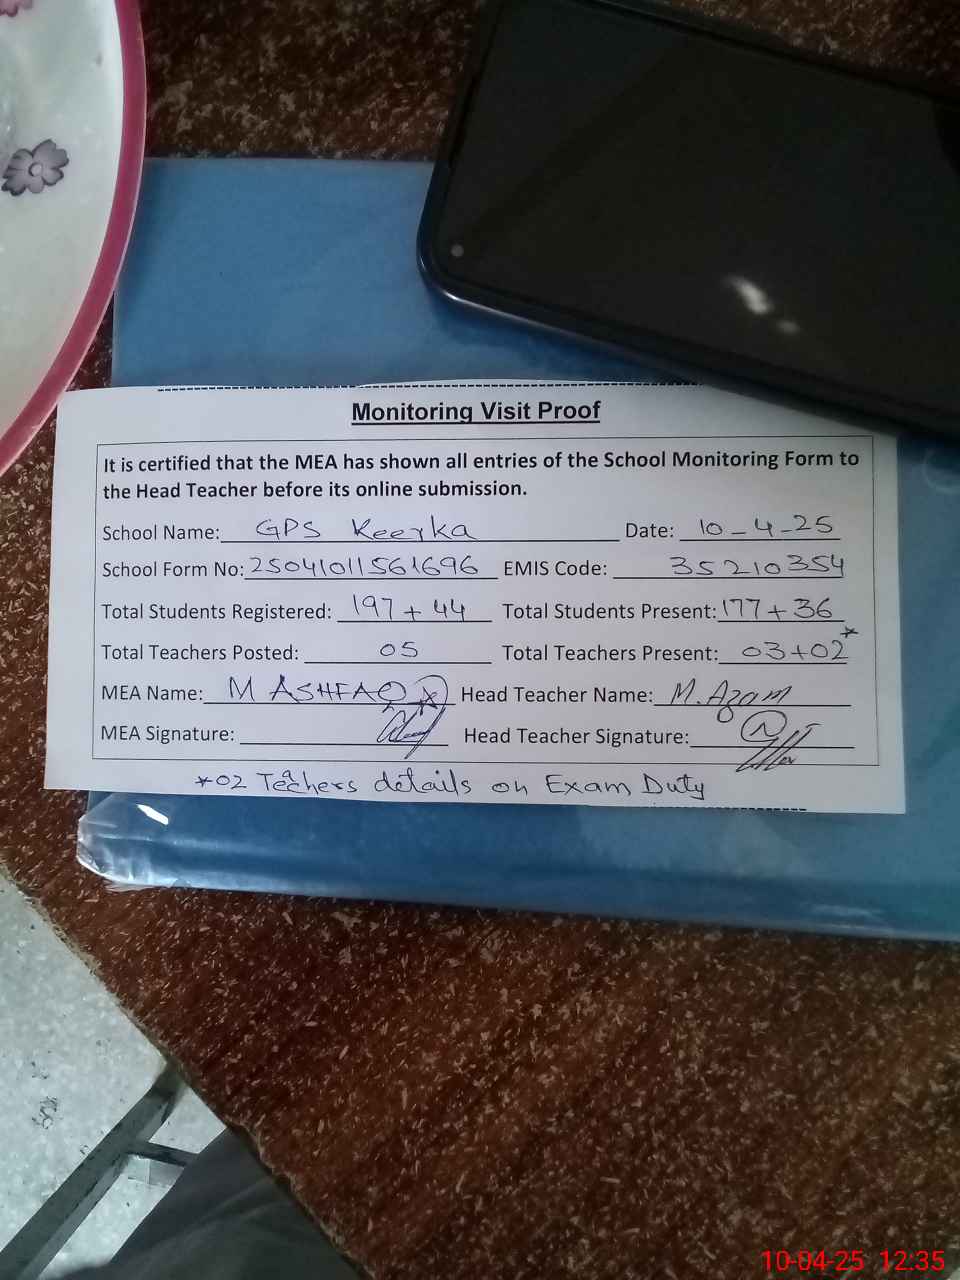 Monitoring Visit Proof
It is certified that the MEA has shown all entries of the School Monitoring Form to
the Head Teacher before its online submission.
School Name: GPS Keerka Date: 10-4-25
School Form No: 25041011561696 EMIS Code: 35210354
Total Students Registered: 197+44 Total Students Present: 177+36
Total Teachers Posted: 05 Total Teachers Present: 03+02*
MEA Name: M ASHFAQ Head Teacher Name: M. Azam
MEA Signature: Head Teacher Signature:
*02 Teachers details on Exam Duty
10-04-25 12:35